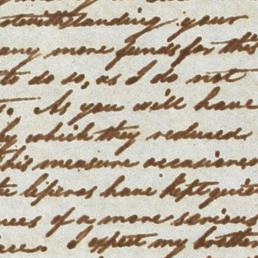 notwithstanding your
any more funds for this
to do so, as I do not
As you will have
by which they reduced
This measure occasioned
have kept quiet
of a more serious
I expect my brother